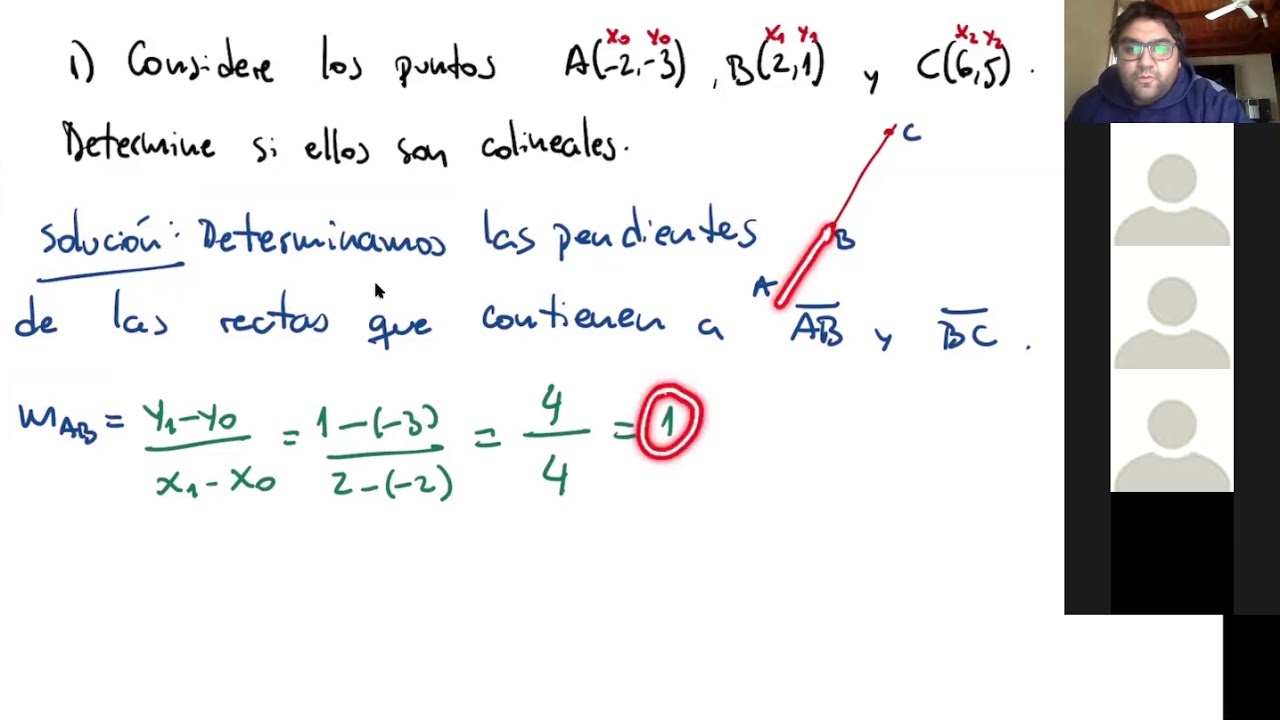 x₀ y₀ x₁ y₁ x₂ y₂
1) Considere los puntos A(-2,-3), B(2,1) y C(6,5).
Determine si ellos son colineales.
C
solución: Determinamos las pendientes
B
A
de las rectas que contienen a A̅B̅ y B̅C̅.
m_AB = (y₁-y₀)/(x₁-x₀) = (1-(-3))/(2-(-2)) = 4/4 = 1